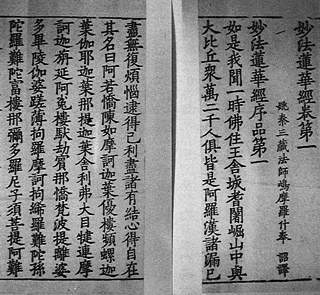 妙法蓮華經卷第一
姚秦三藏法師鳩摩羅什奉 詔譯
妙法蓮華經序品第一
如是我聞一時佛住王舍城耆闍崛山中與
大比丘衆萬二千人俱皆是阿羅漢諸漏已
盡無復煩惱逮得己利盡諸有結心得自在
其名曰阿若憍陳如摩訶迦葉優樓頻螺迦
葉伽耶迦葉那提迦葉舍利弗大目犍連摩
訶迦旃延阿㝹樓馱劫賓那憍梵波提離婆
多畢陵伽婆蹉薄拘羅摩訶拘絺羅難陀孫
陀羅難陀富樓那彌多羅尼子須菩提阿難